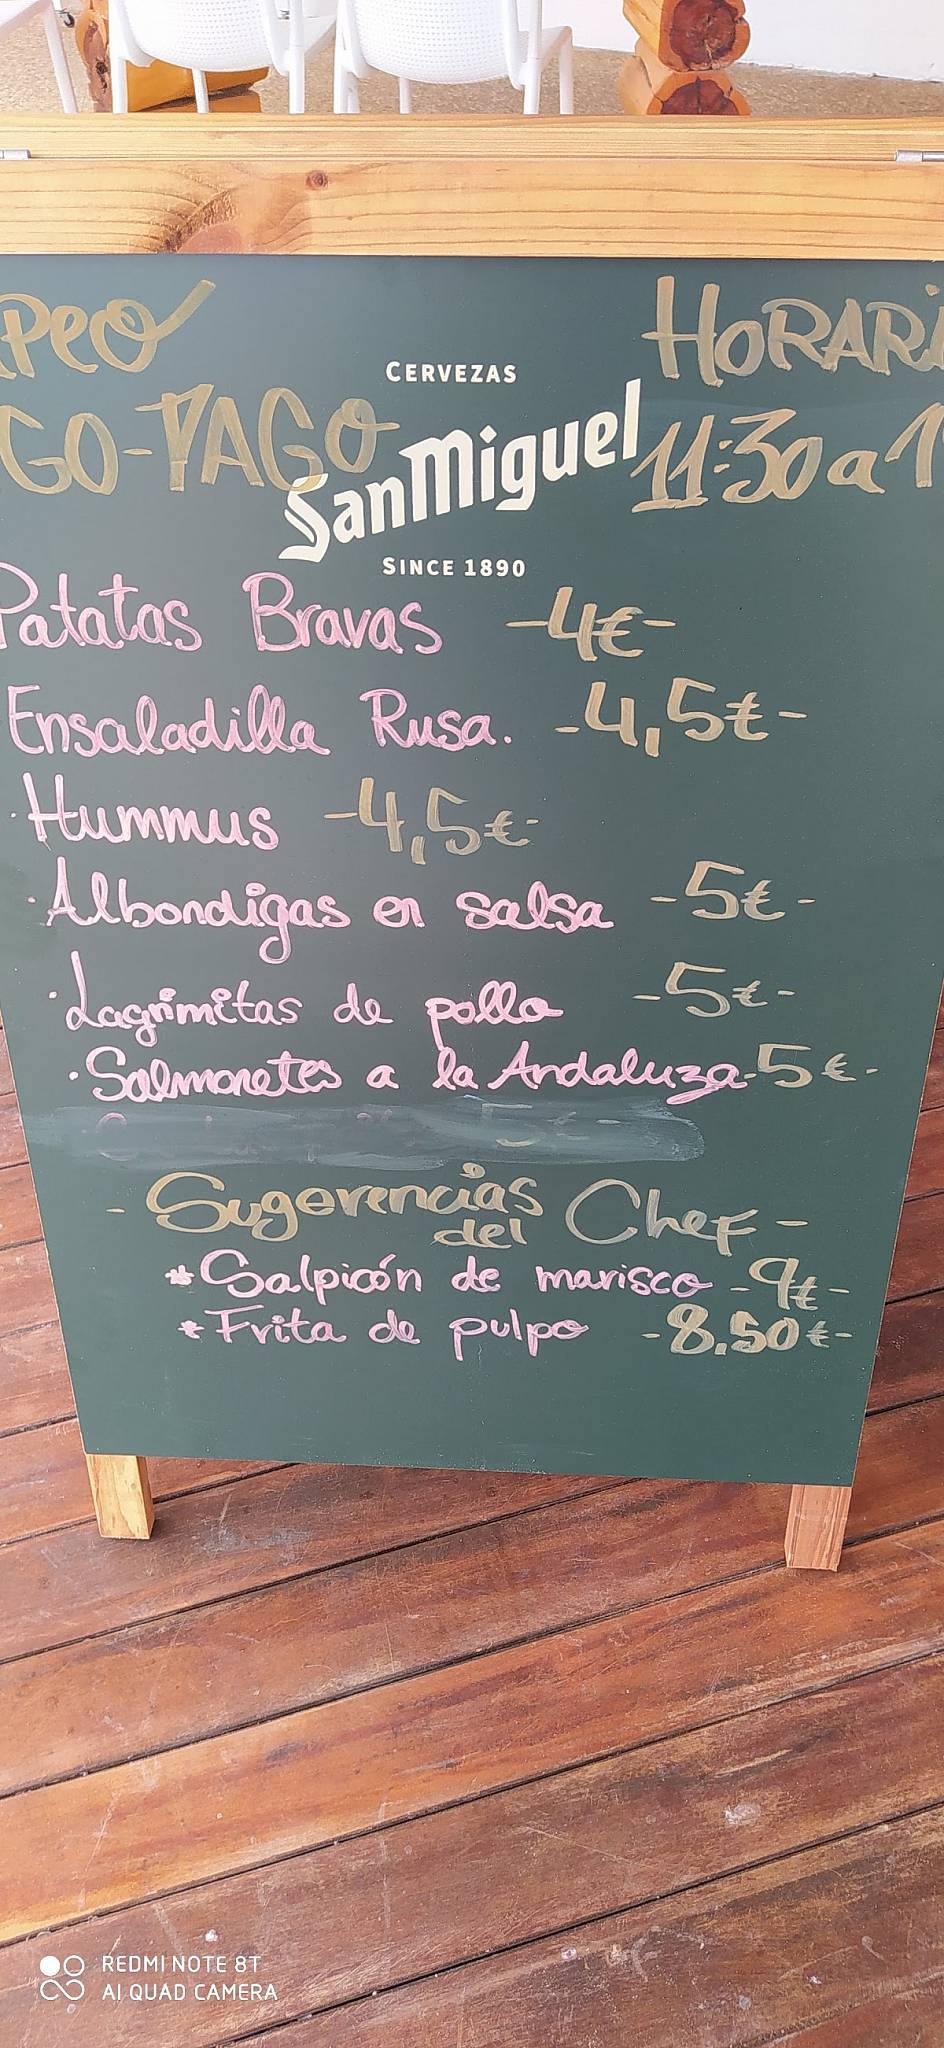 PEO
HORARI
CERVEZAS
GO-PAGO
San Miguel
11:30 a 1
SINCE 1890
Patatas Bravas -4€-
Ensaladilla Rusa. -4,5€-
· Hummus -4,5€-
· Albondigas en salsa -5€-
· Lagrimitas de pollo -5€-
· Salmonetes a la Andaluza -5€-
- Sugerencias del Chef -
* Salpicón de marisco -9€-
* Frita de pulpo -8.50€-
REDMI NOTE 8T
AI QUAD CAMERA